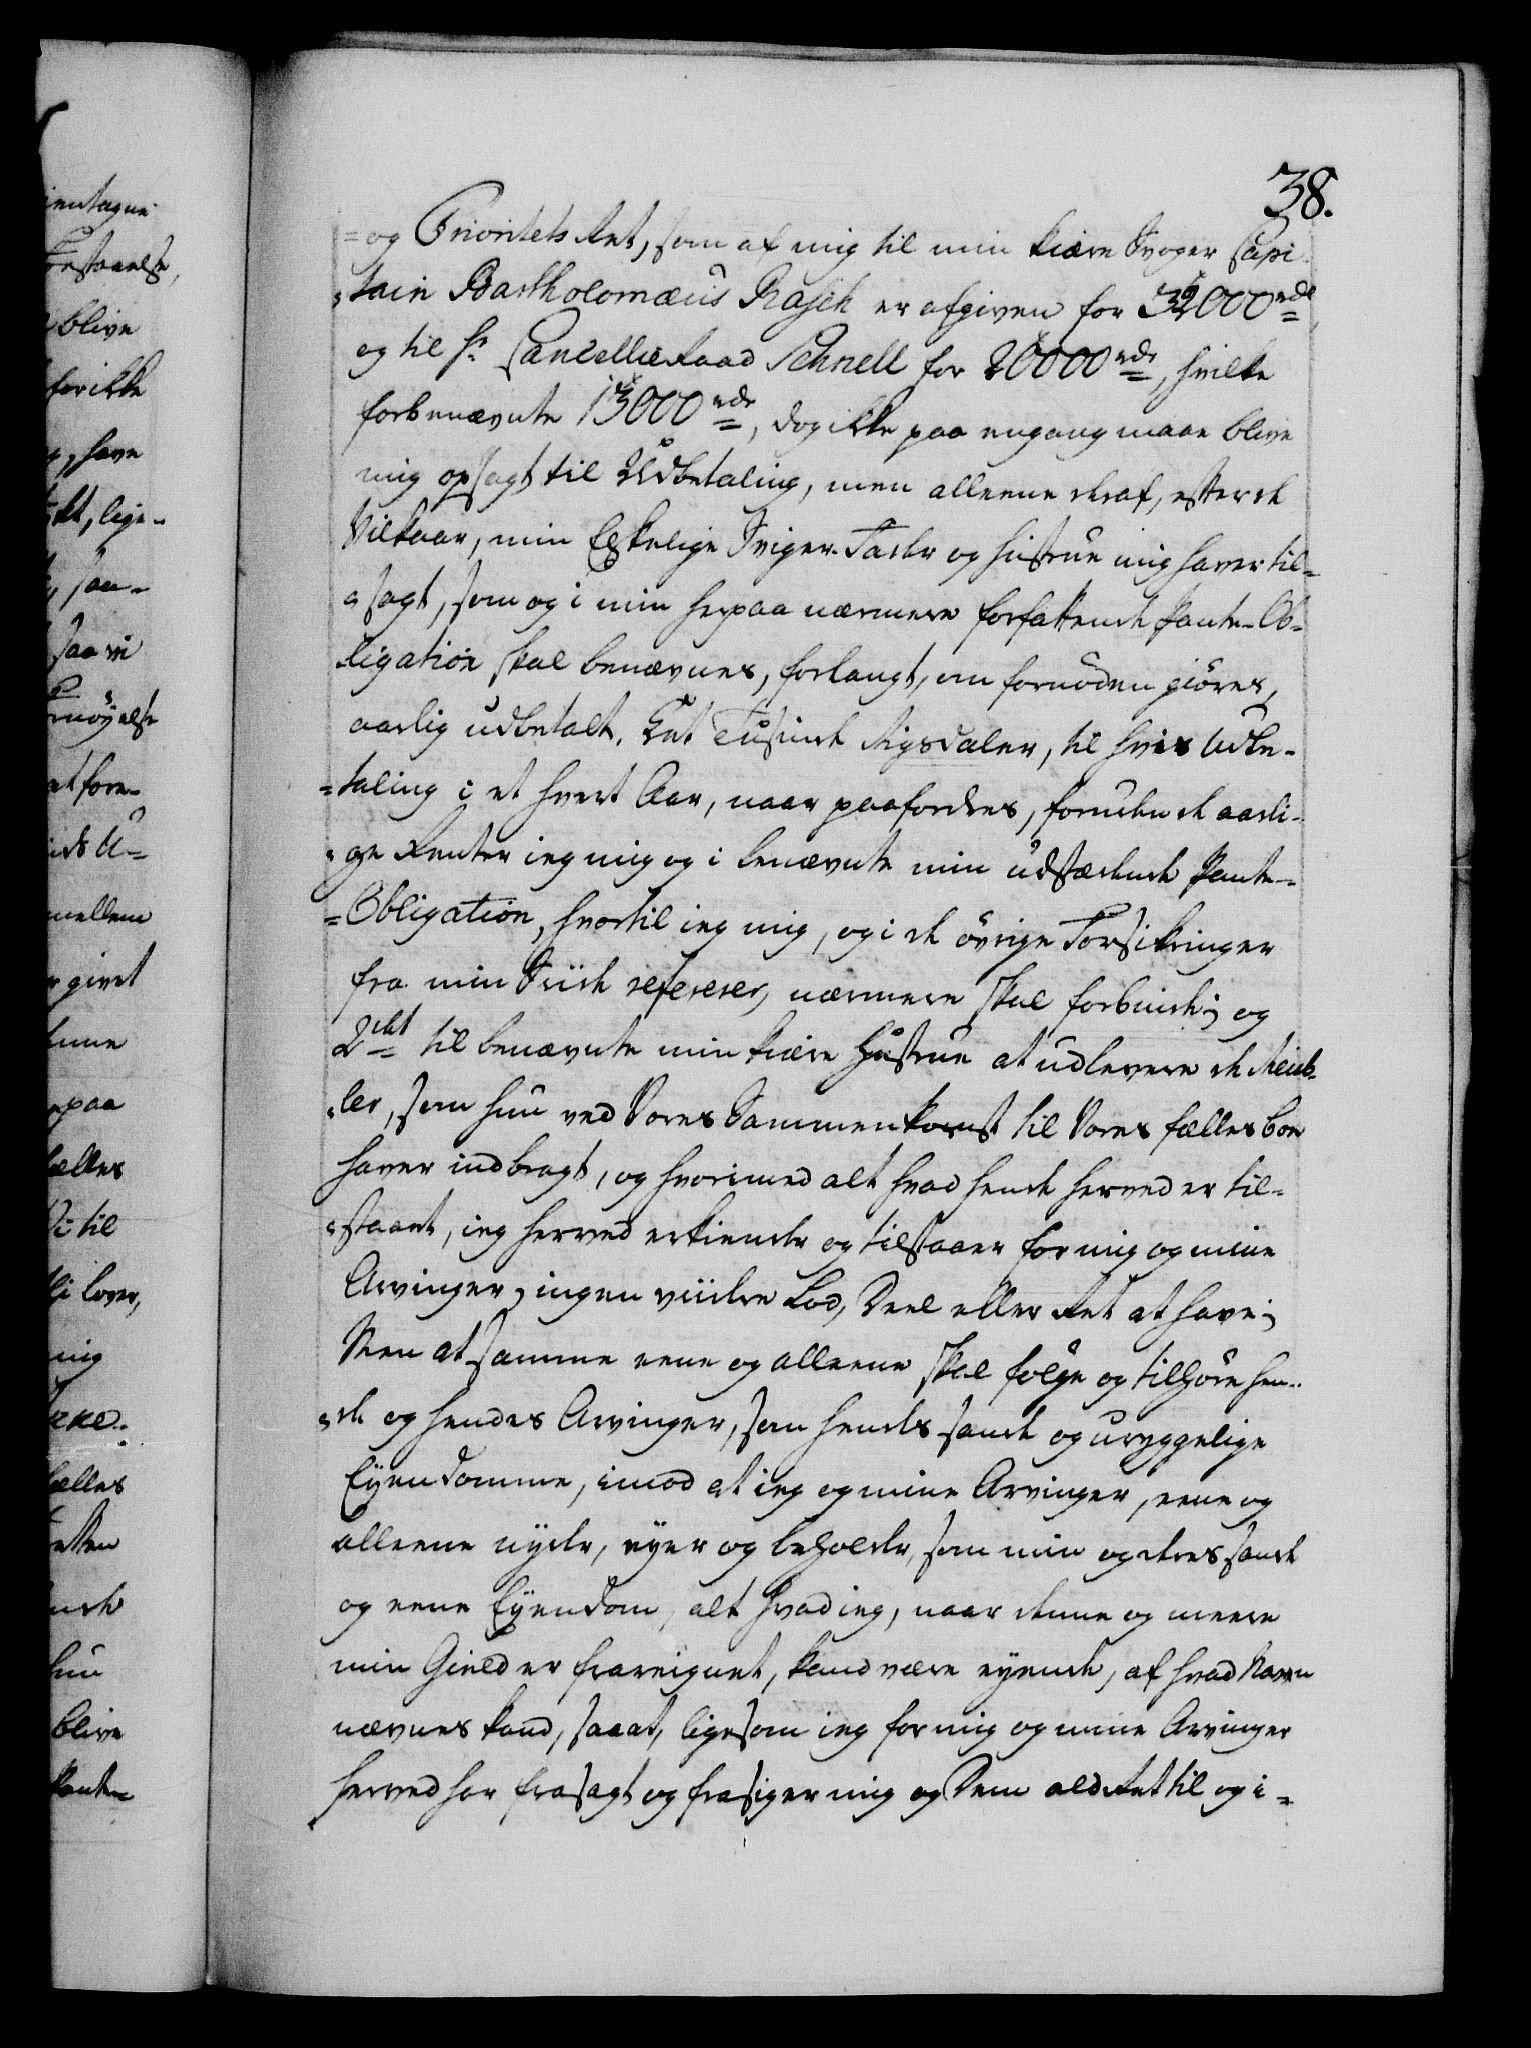 38.
=og Prioritets Ret, som af mig til min kiære Svoger Capi-
=tain Bartholomæus Rasch er afgiven for 32000 rdl
og til Hr Cancellie Raad Schnell for 20000 rdr, hvilke
forbenævnte 13000 rdr, dog ikke paa engang maae blive
mig opsagt til Udbetaling, men alleene deraf, efter de
Vilkaar, min Elskelige Sviger-Fader og Hustrue mig haver til-
=sagt, som og i min herpaa nærmere forfattende Pante-Ob-
ligation skal benævnes, forlangt, om fornöden giöres,
aarlig udbetalt, Eet Tusinde Rigsdaler, til hvis Udbe-
=taling i et hvert Aar, naar paafordres, foruden de aarli-
=ge Renter ieg mig og i benævnte min udstædende Pante-
=Obligation, hvortil ieg mig, og i de övrige Forsikringer
fra min Siide refererer, nærmere skal forbinde; og
2det til benævnte min kiære Hustrue at udlevere de Meub-
=ler, som hun ved Vores Sammenkomst til Vores fælles boe
haver indbragt, og hvorimod alt hvad hende herved er til-
=staaet, ieg herved erkiender og tilstaaer for mig og mine
Arvinger, ingen viidere Lod, Deel eller Ret at have;
Men at samme eene og alleene skal fölge og tilhöre hen-
=de og hendes Arvinger, som hendes sande og uryggelige
Eÿendomme, imod at ieg og mine Arvinger, eene og
alleene nyder, eyer og beholder, som min og deres sande
og eene Eÿendom, alt hvad ieg, naar denne og meere
min Gield er fraregnet, kand være eyende, af hvad Navn
nævnes kand, saa at, ligesom ieg for mig og mine Arvinger
herved har frasagt og frasiger mig og Dem ald Ret til og i-